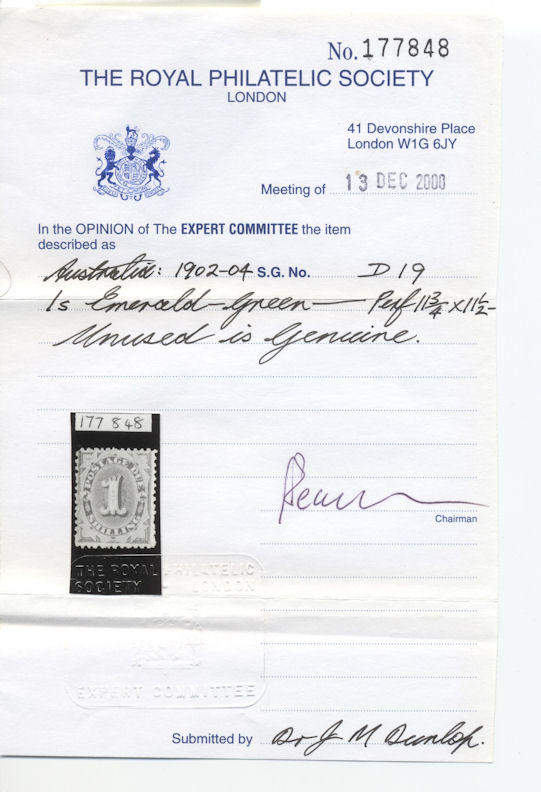 No. 177848
THE ROYAL PHILATELIC SOCIETY
LONDON
41 Devonshire Place
London W1G 6JY
Meeting of 13 DEC 2000
In the OPINION of The EXPERT COMMITTEE the item
described as
Australia: 1902-04 S.G. No. D19
1s Emerald-Green - Perf 11 3/4 x 11 1/2
Unused is Genuine.
177 848
POSTAGE DUE
1
SHILLING
Chairman
THE ROYAL PHILATELIC
SOCIETY LONDON
EXPERT COMMITTEE
Submitted by Dr J M Dunlop.